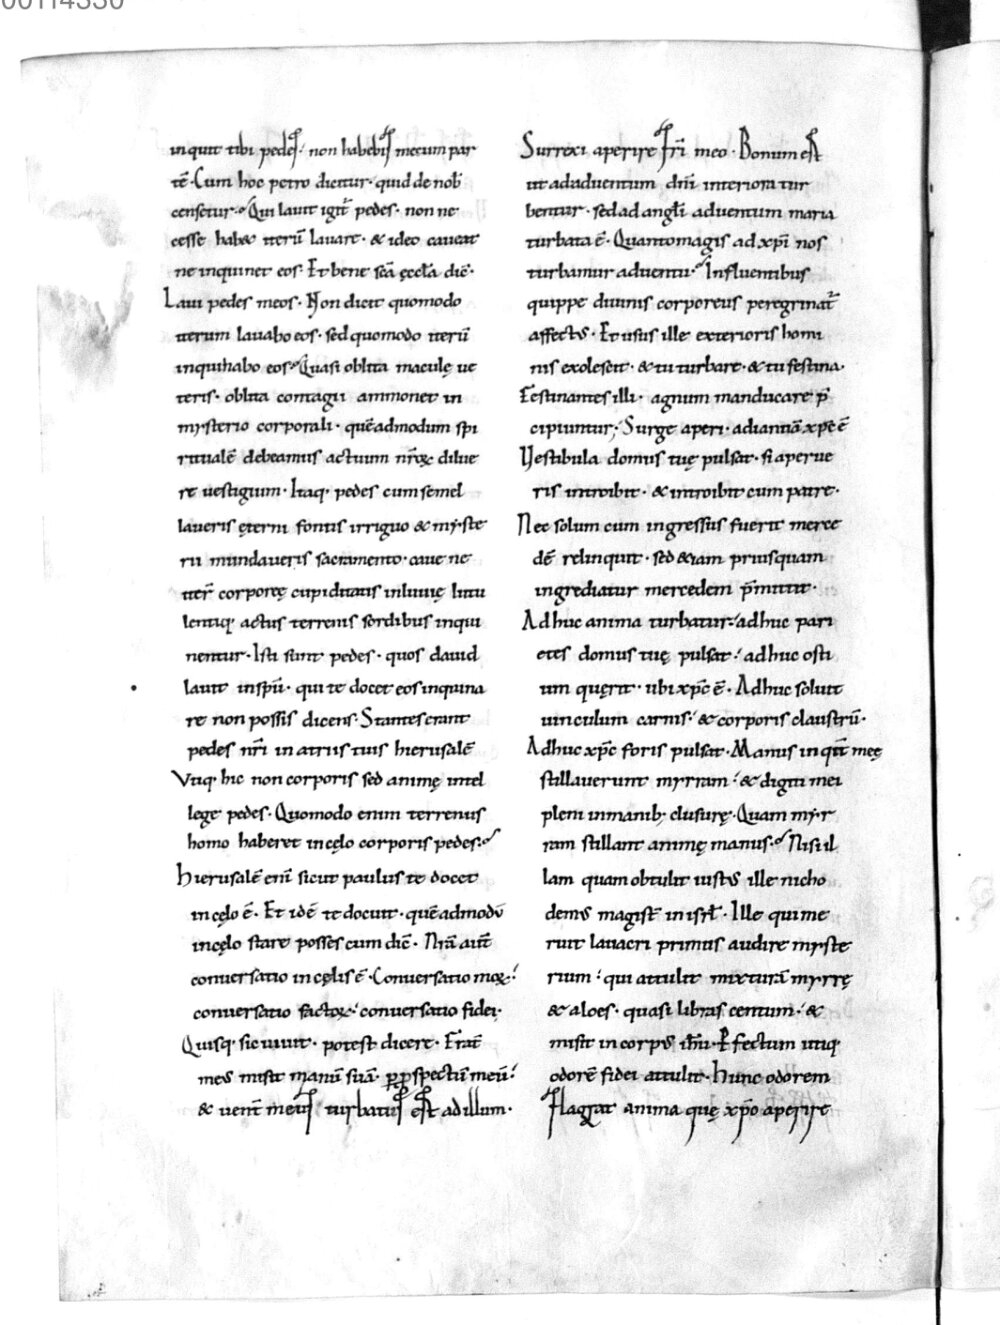 00114330
inquit tibi pedes. non habebis mecum par
tē. Cum hoc petro dicitur. quid de nob̄
censetur. Qui lauit igit̄ pedes. non ne
cesse habet iterū lauare. & ideo caueat
ne inquinet eos. Et bene sc̄a ęccl̄a dic̄.
Laui pedes meos. Non dicit quomodo
iterum lauabo eos. sed quomodo iterū
inquinabo eos. Quasi oblita maculę ue
teris. oblita contagii ammonet in
mysterio corporali. quēadmodum spi
ritualē debeamus actuum nr̄oꝝ dilue
re uestigium. Itaq. pedes cum semel
laueris ęterni fontis irriguo & myste
rii mundaueris sacramento. caue ne
iter̄ corporeę cupiditatis inluuię lutu
lentiq. actus terrenis sordibus inqui
nentur. Isti sunt pedes. quos dauid
lauit in spū. qui te docet eos inquina
re non possis dicens. Stantes erant
pedes nr̄i in atriis tuis hierusalē
Vtiq. hic non corporis sed animę intel
lege pedes. Quomodo enim terrenus
homo haberet in cęlo corporis pedes.
hierusalē eni᷒ sicut paulus te docet
in cęlo ē. Et idē te docuit. quēadmodū
in cęlo stare posses cum dic̄. Nr̄a aut̄
conuersatio in cęlis ē. Conuersatio moꝝ.
conuersatio factoꝝ. conuersatio fidei.
Quisq. sic uiuit. potest dicere. Frat̄
meus misit manū suā. ꝑ ꝓspectū meū.
& uent̄ meus turbatus est ad illum.
Surrexi aperire fr̄i meo. Bonum est
ut ad aduentum dn̄i interiora tur
bentur. sed ad angl̄i aduentum maria
turbata ē. Quanto magis ad xp̄i nos
turbamur aduentu. Influentibus
quippe diuinis corporeus peregrinat̄
affectus. Et usus ille exterioris homi
nis exolescit. & tu turbare. & tu festina.
Festinantes illi. agnum manducare p̄
cipiuntur. Surge aperi. ad ianuā xp̄c ē
Vestibula domus tuę pulsat. si aperue
ris introibit. & introibit cum patre.
Nec solum cum ingressus fuerit merce
dē relinquit. sed &iam priusquam
ingrediatur mercedem p̄mittit.
Adhuc anima turbatur. adhuc pari
etes domus tuę pulsat. adhuc osti
um quęrit. ubi xp̄c ē. Adhuc soluit
uinculum carnis. & corporis claustrū.
Adhuc xp̄c foris pulsat. Manus inquit meę
stillauerunt myrram. & digiti mei
pleni in manib; clusurę. Quam myr
ram stillant animę manus. Nisi il
lam quam obtulit iustus ille nicho
demus magist̄ in isrl̄. Ille qui me
ruit lauacri primus audire myste
rium. qui attulit mixturā myrrę
& aloes. quasi libras centum. &
misit in corpus ihū. Ꝑfectum utiq.
odorē fidei attulit. hunc odorem
flagrat anima quę xp̄o aperire